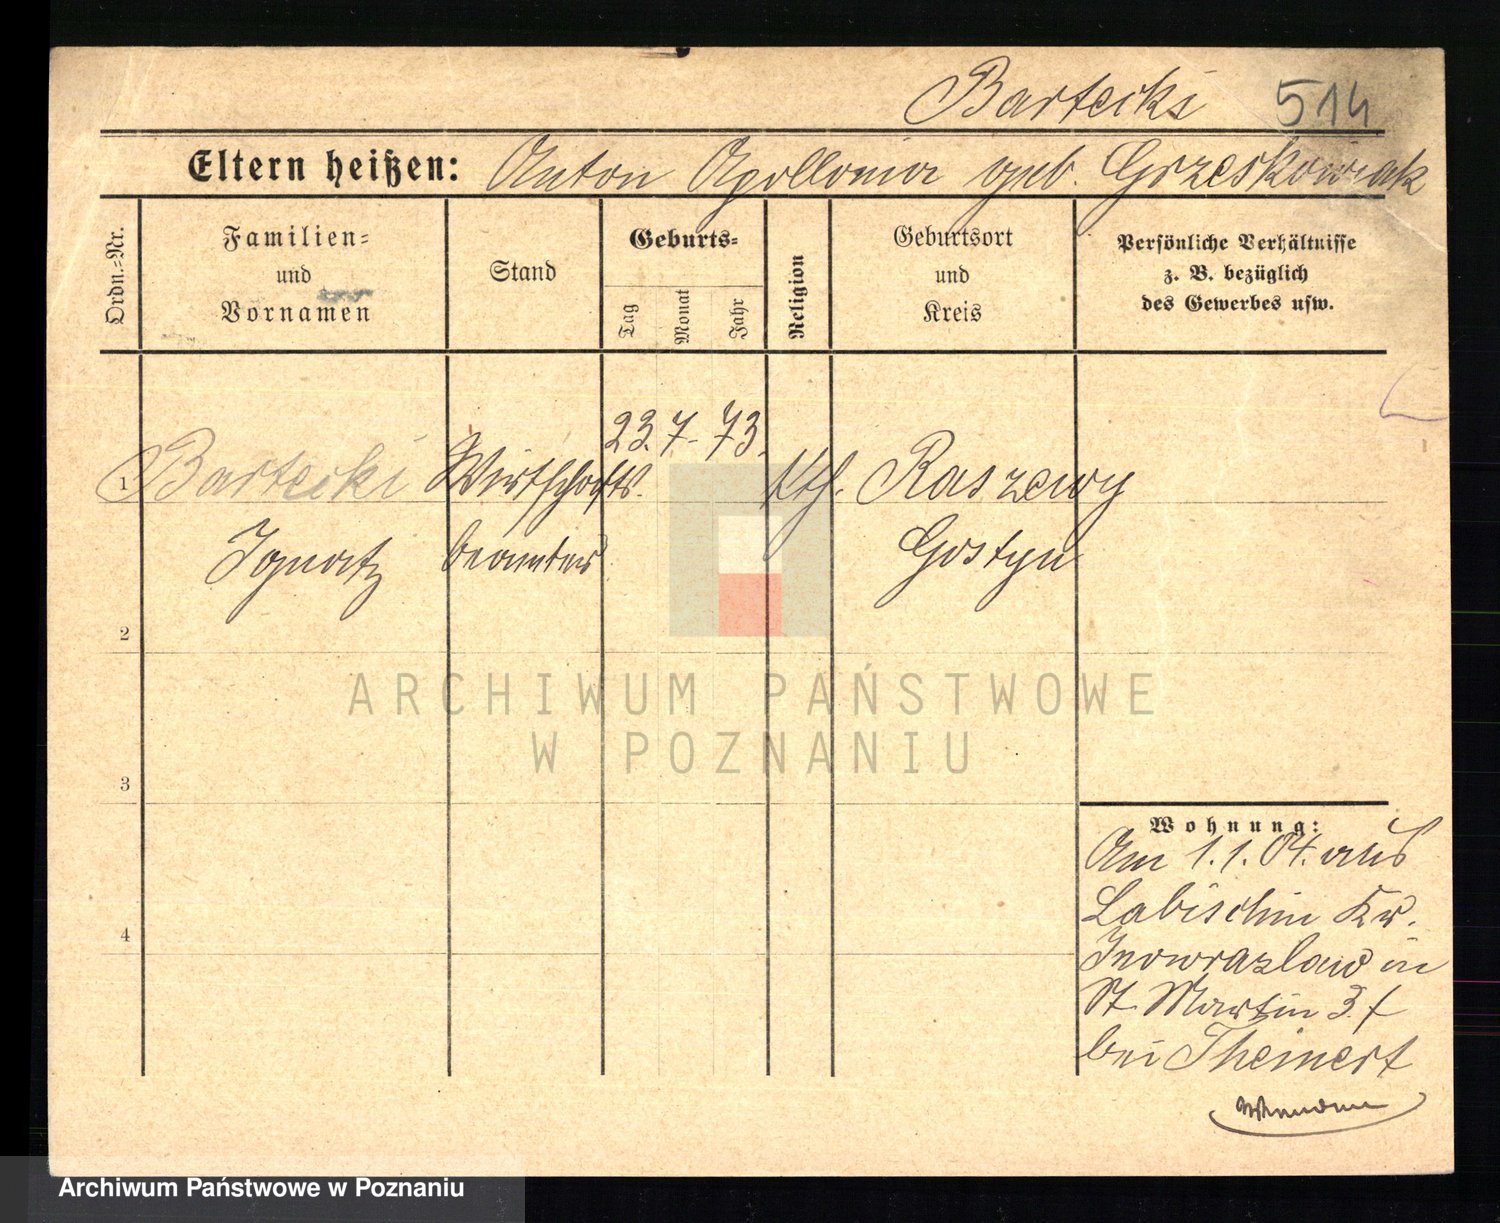 Bartecki 514
Eltern heißen: Anton Apollonia geb. Grzeskowiak
Ordn.-Nr.
Familien-
und
Vornamen
Stand
Geburts-
Tag
Monat
Jahr
Religion
Geburtsort
und
Kreis
Persönliche Verhältnisse
z. B. bezüglich
des Gewerbes usw.
1 Bartecki Wirtschafts. 23. 7. 73. Kth. Raszewy
Ignatz beamter Gostyn
2
3
4
Wohnung:
Am 1.1.04. aus
Labischin Kr.
Inowrazlaw in
St. Martin 3.
bei Theinert
ARCHIWUM PAŃSTWOWE
W POZNANIU
Archiwum Państwowe w Poznaniu